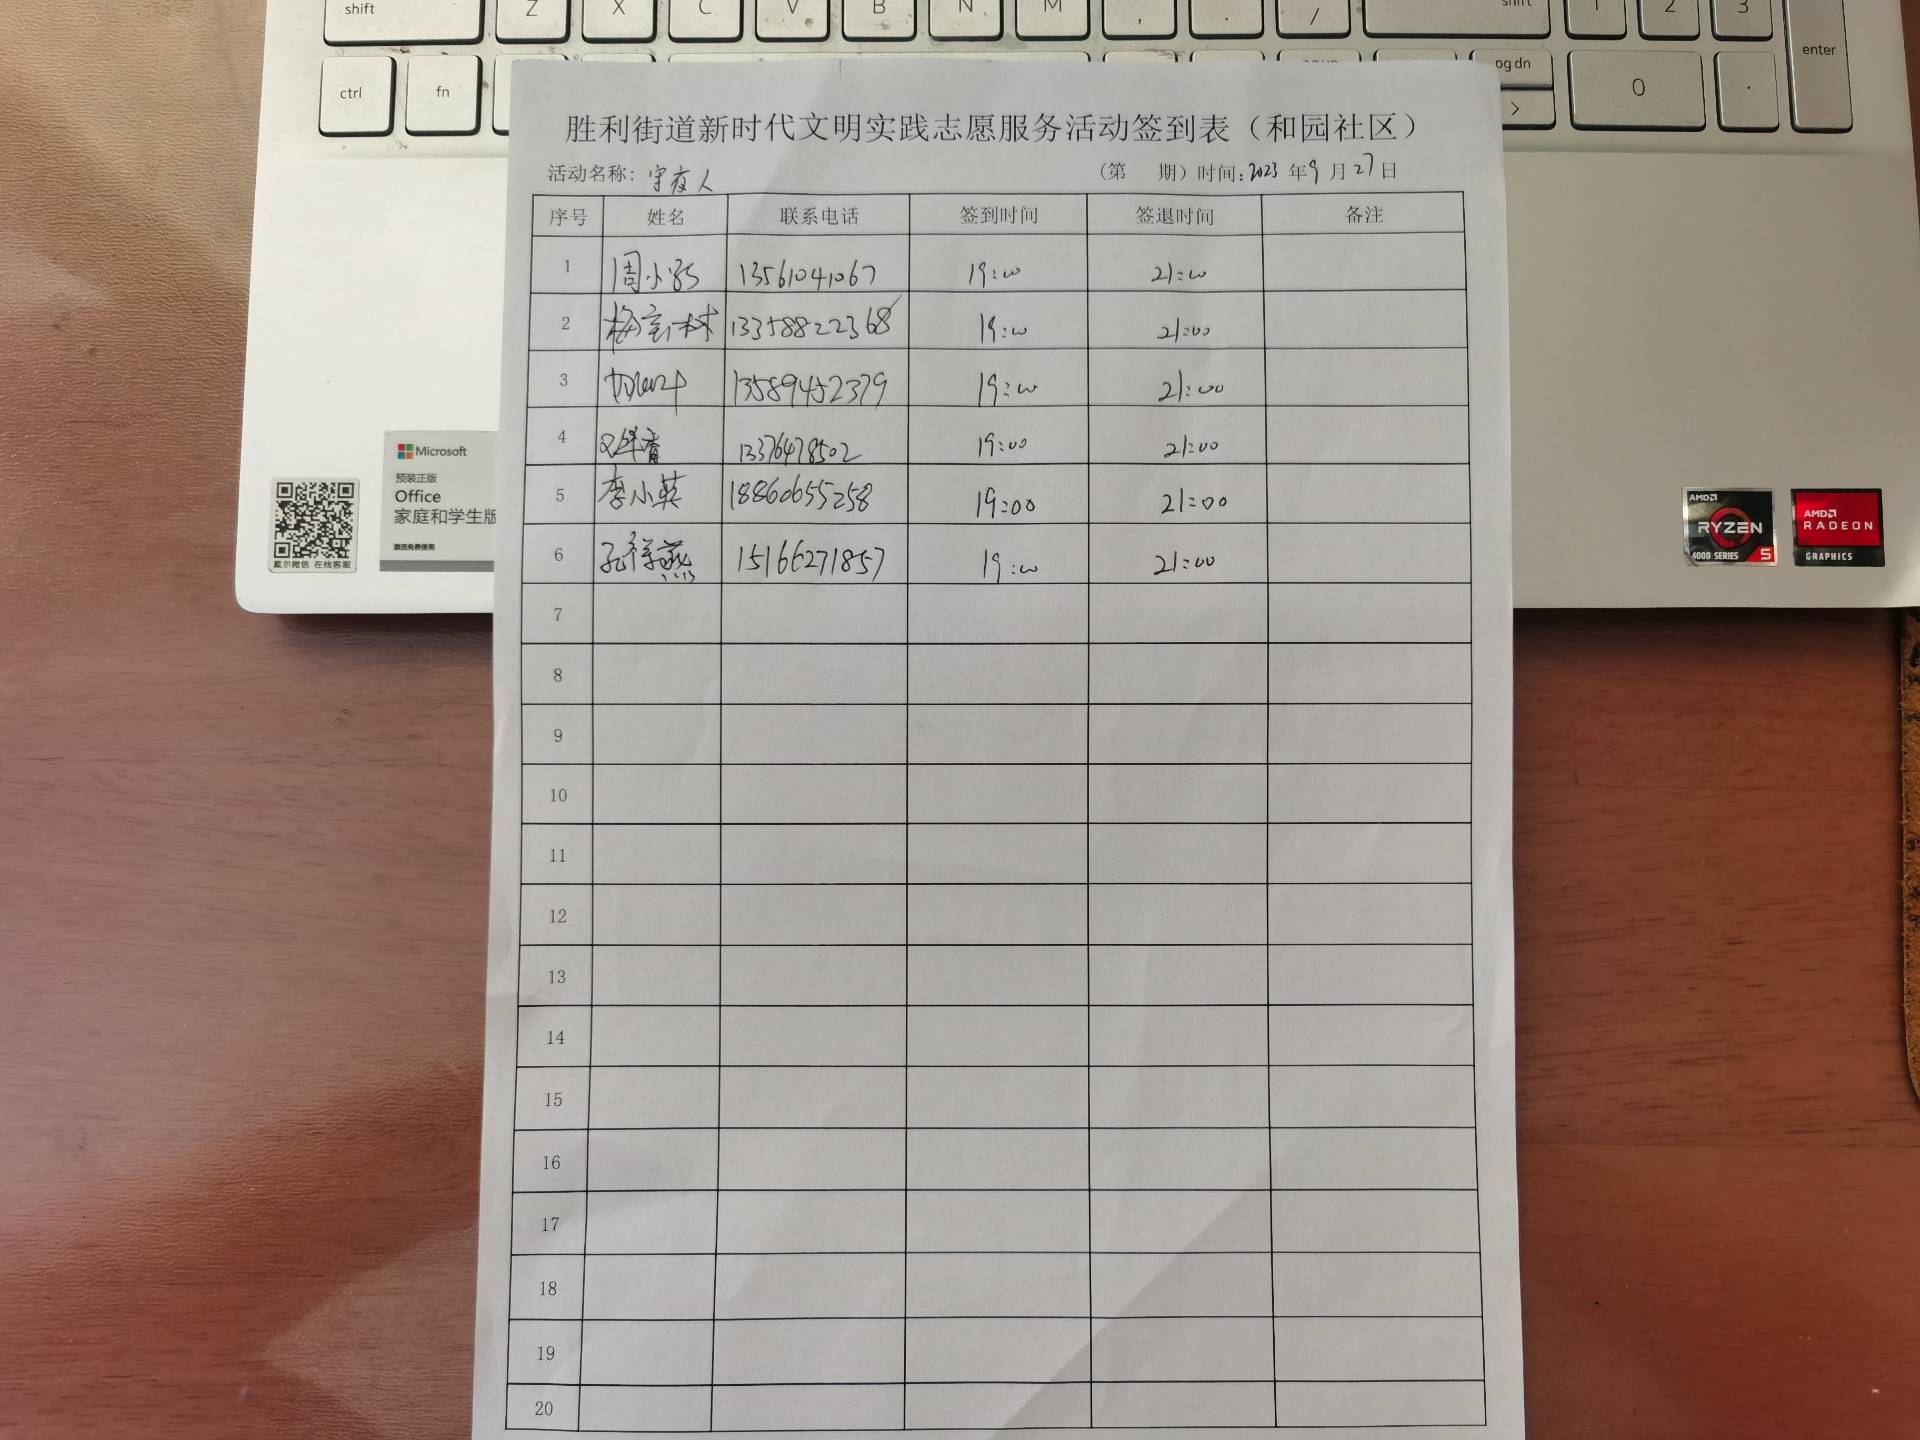 shift Z X C V B N M , . / shift 1 2 3 enter
ctrl fn pg dn > 0 .
胜利街道新时代文明实践志愿服务活动签到表（和园社区）
活动名称：守夜人 （第 期）时间：2023年9月27日
序号 姓名 联系电话 签到时间 签退时间 备注
1 周小 13561041067 19:00 21:00
2 梅宝林 13358822368 19:00 21:00
3 13589452379 19:00 21:00
4 13376478502 19:00 21:00
5 李小英 18860655258 19:00 21:00
6 孔祥燕 15166271857 19:00 21:00
7
8
9
10
11
12
13
14
15
16
17
18
19
20
Microsoft
预装正版
Office
家庭和学生版
激活免费使用
戴尔微信 在线客服
AMD
RYZEN
4000 SERIES 5
AMD
RADEON
GRAPHICS